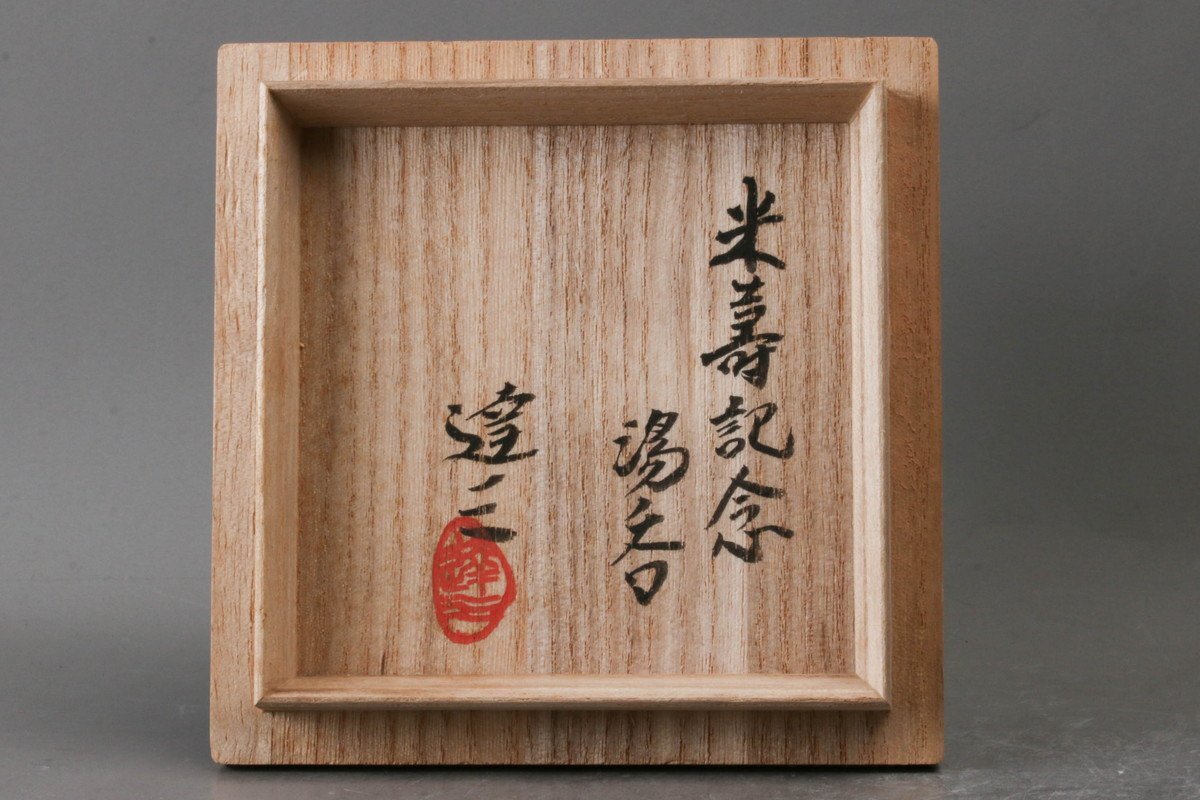 米壽記念
湯呑
達三